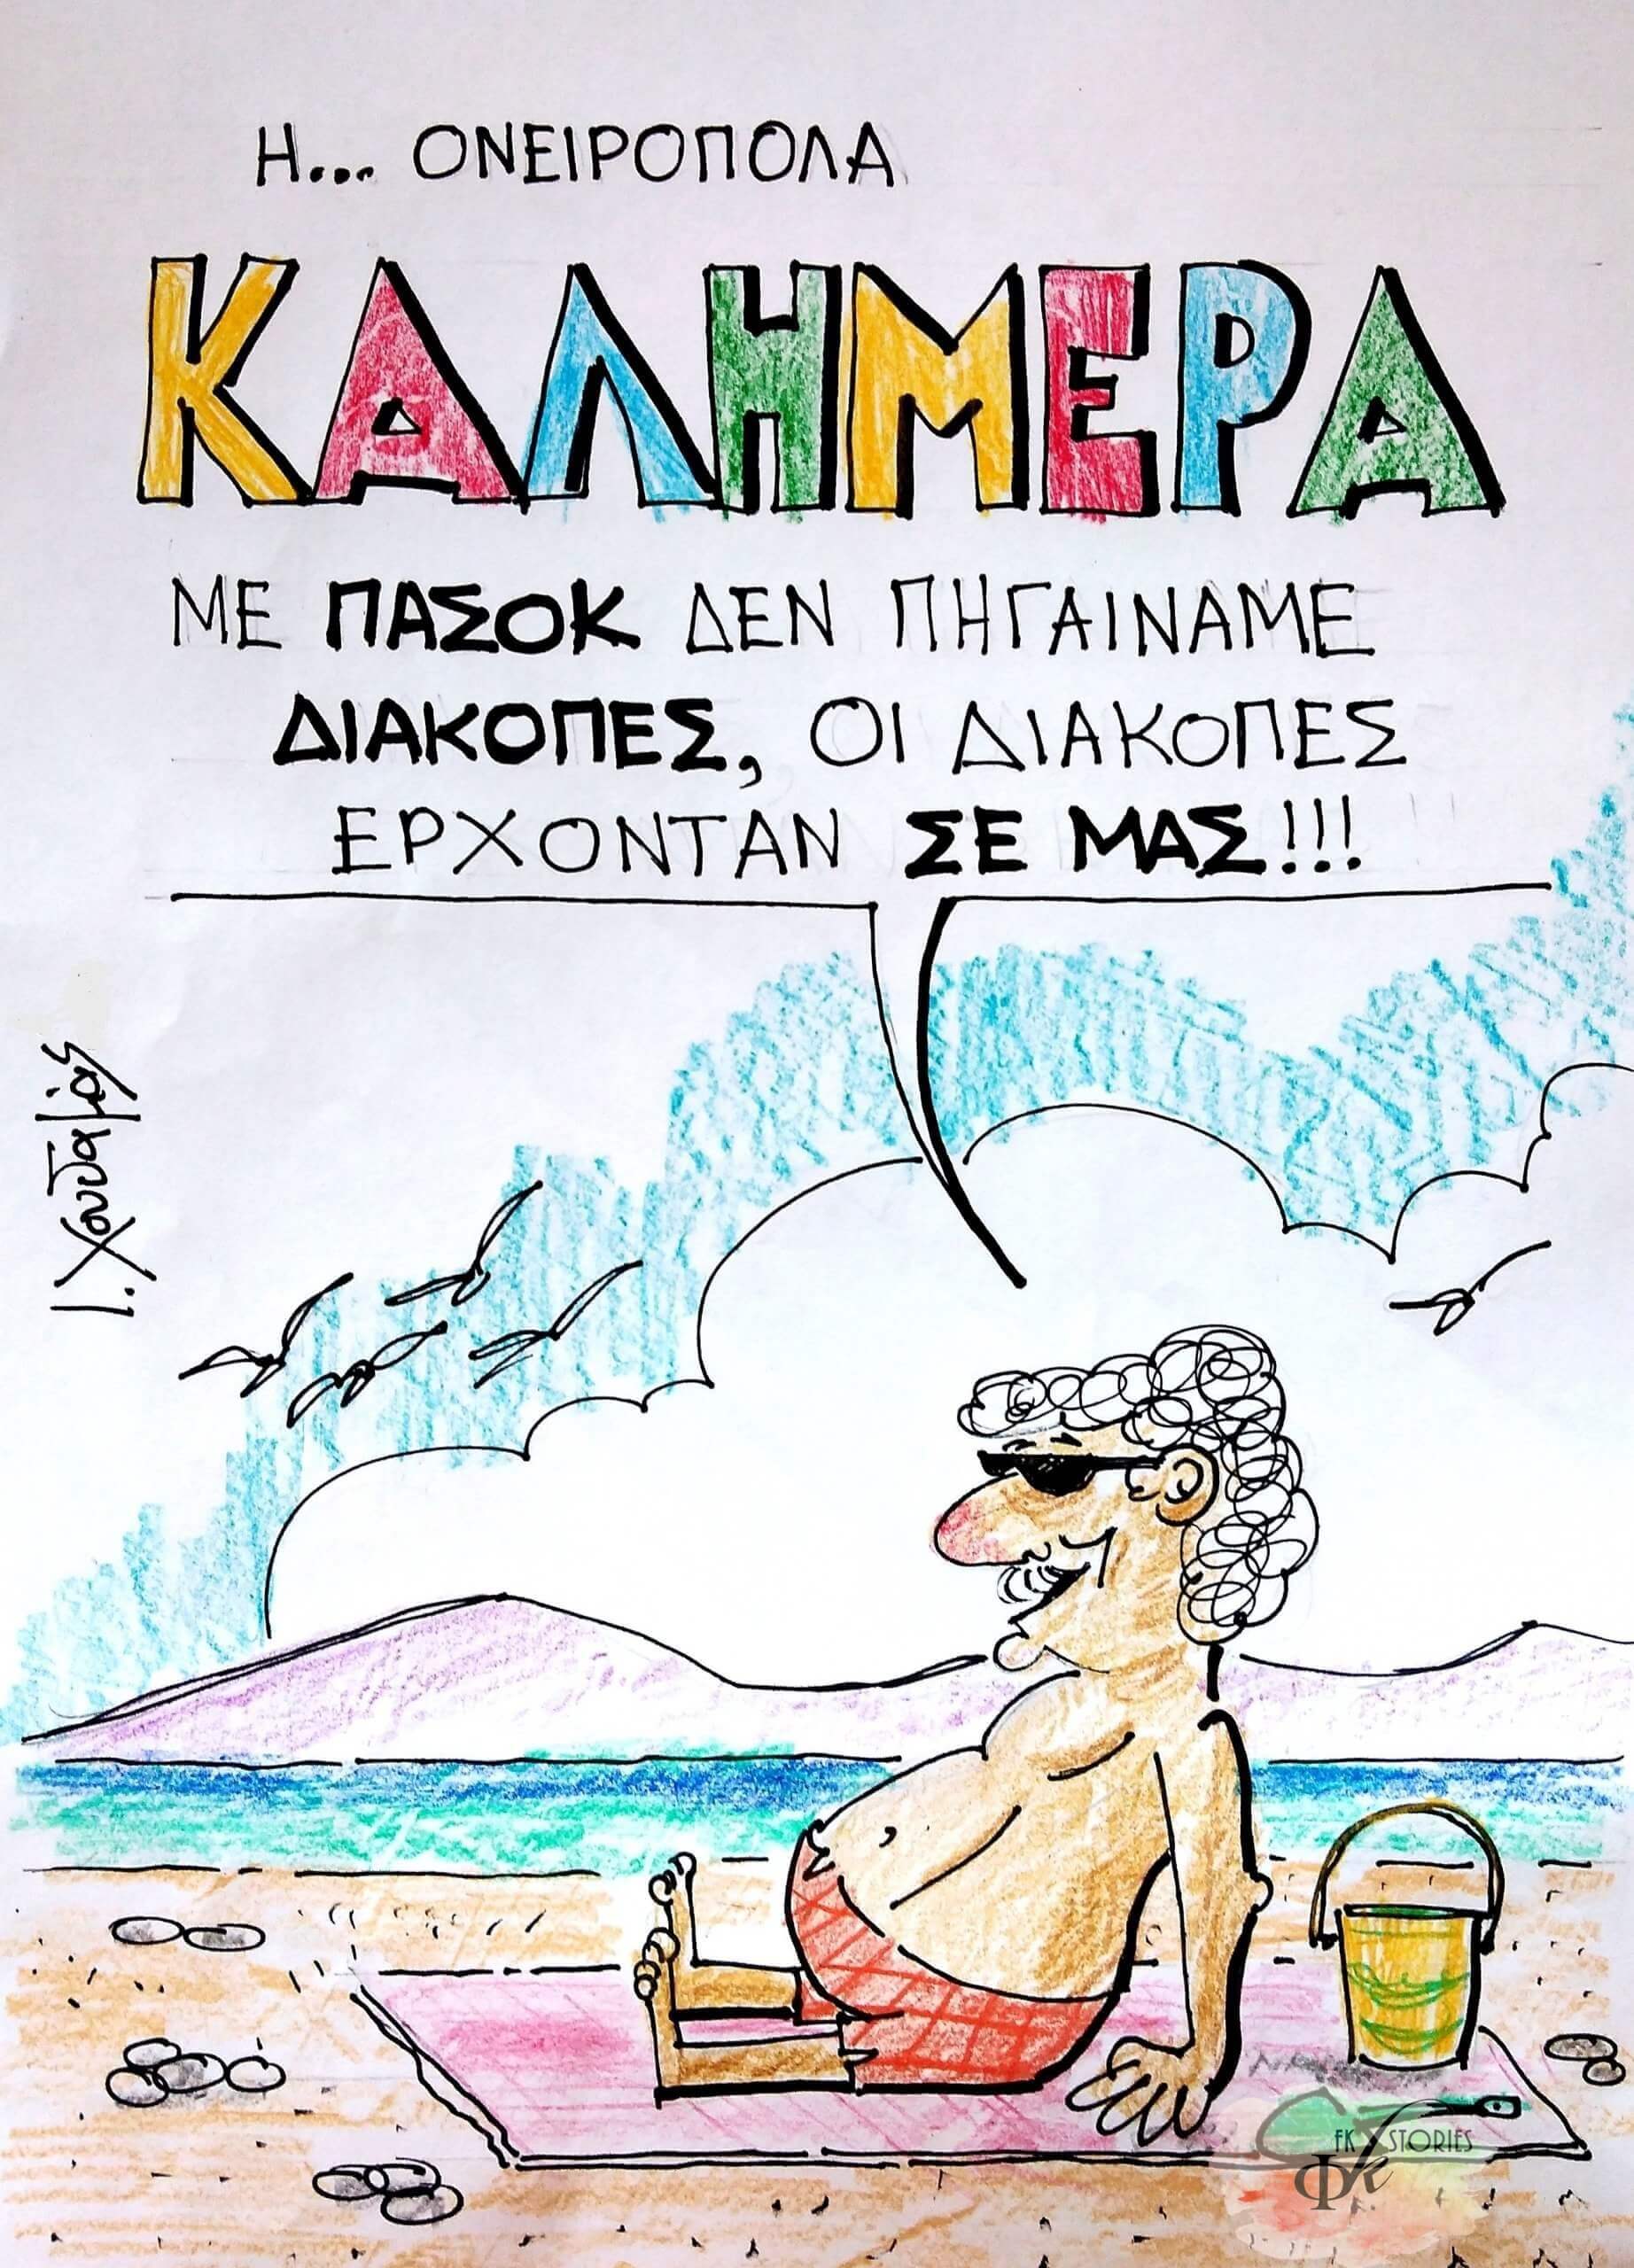 Η... ΟΝΕΙΡΟΠΟΛΑ
ΚΑΛΗΜΕΡΑ
ΜΕ ΠΑΣΟΚ ΔΕΝ ΠΗΓΑΙΝΑΜΕ
ΔΙΑΚΟΠΕΣ, ΟΙ ΔΙΑΚΟΠΕΣ
ΕΡΧΟΝΤΑΝ ΣΕ ΜΑΣ!!!
Ι. Χουταμάς
FK STORIES
Φκ